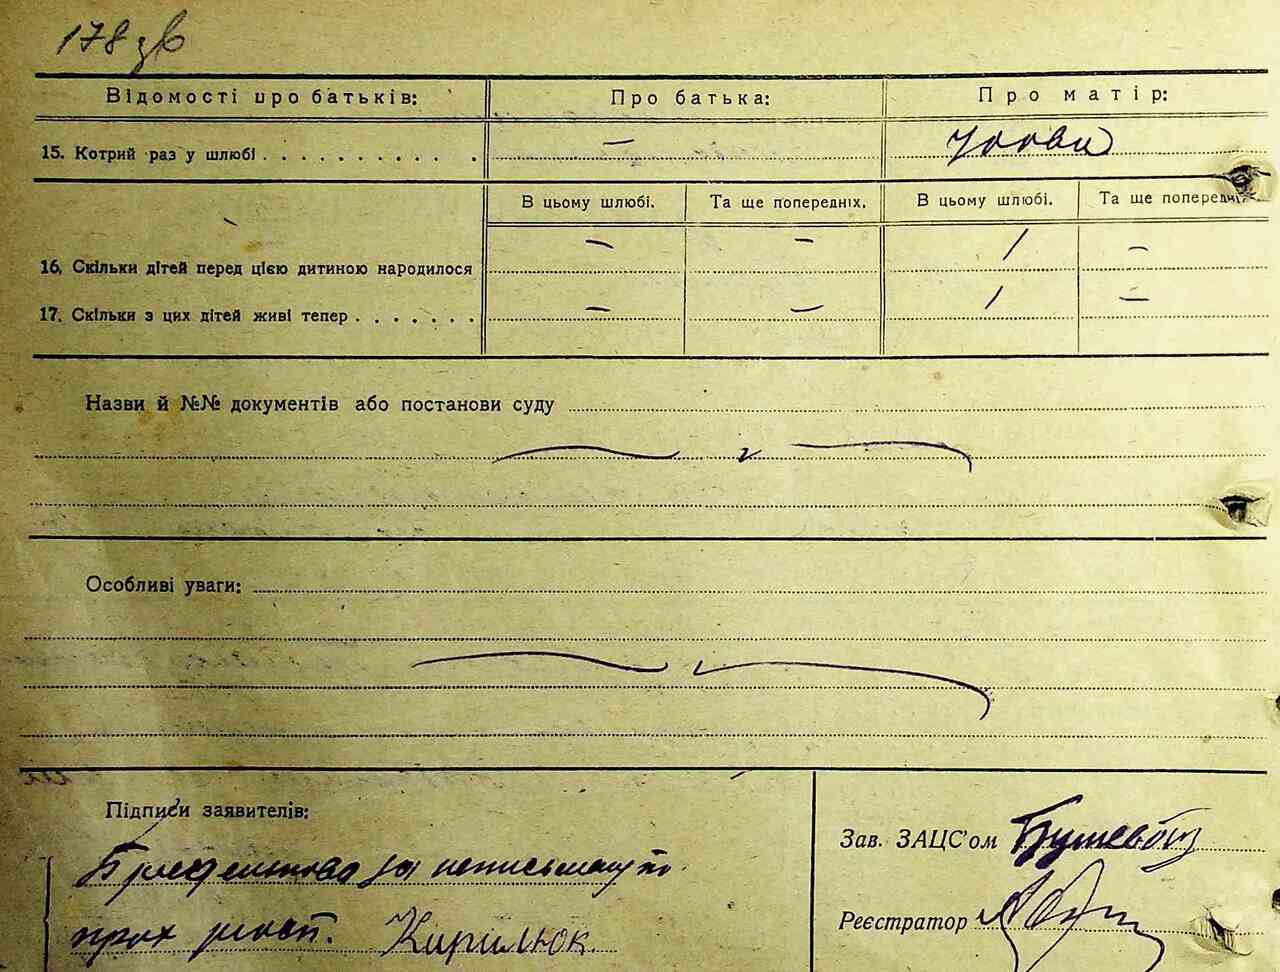 178 зв
Відомості про батьків: Про батька: Про матір:
15. Котрий раз у шлюбі . . . . . . . . . . . — удова
В цьому шлюбі. Та ще попередніх. В цьому шлюбі. Та ще попередніх.
16. Скільки дітей перед цією дитиною народилося — — 1 —
17. Скільки з цих дітей живі тепер . . . . . . . — — 1 —
Назви й №№ документів або постанови суду
Особливі уваги:
Підписи заявителів:
Зав. ЗАЦС'ом
за неписьмену
Реєстратор
Кирилюк.